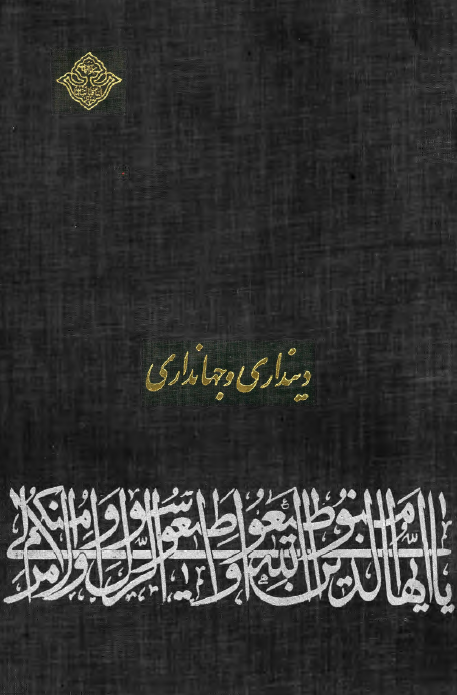 دینداری و جهانداری
یا ایها الذین امنو اطیعوا الله و اطیعوا الرسول و اولی الامر منکم